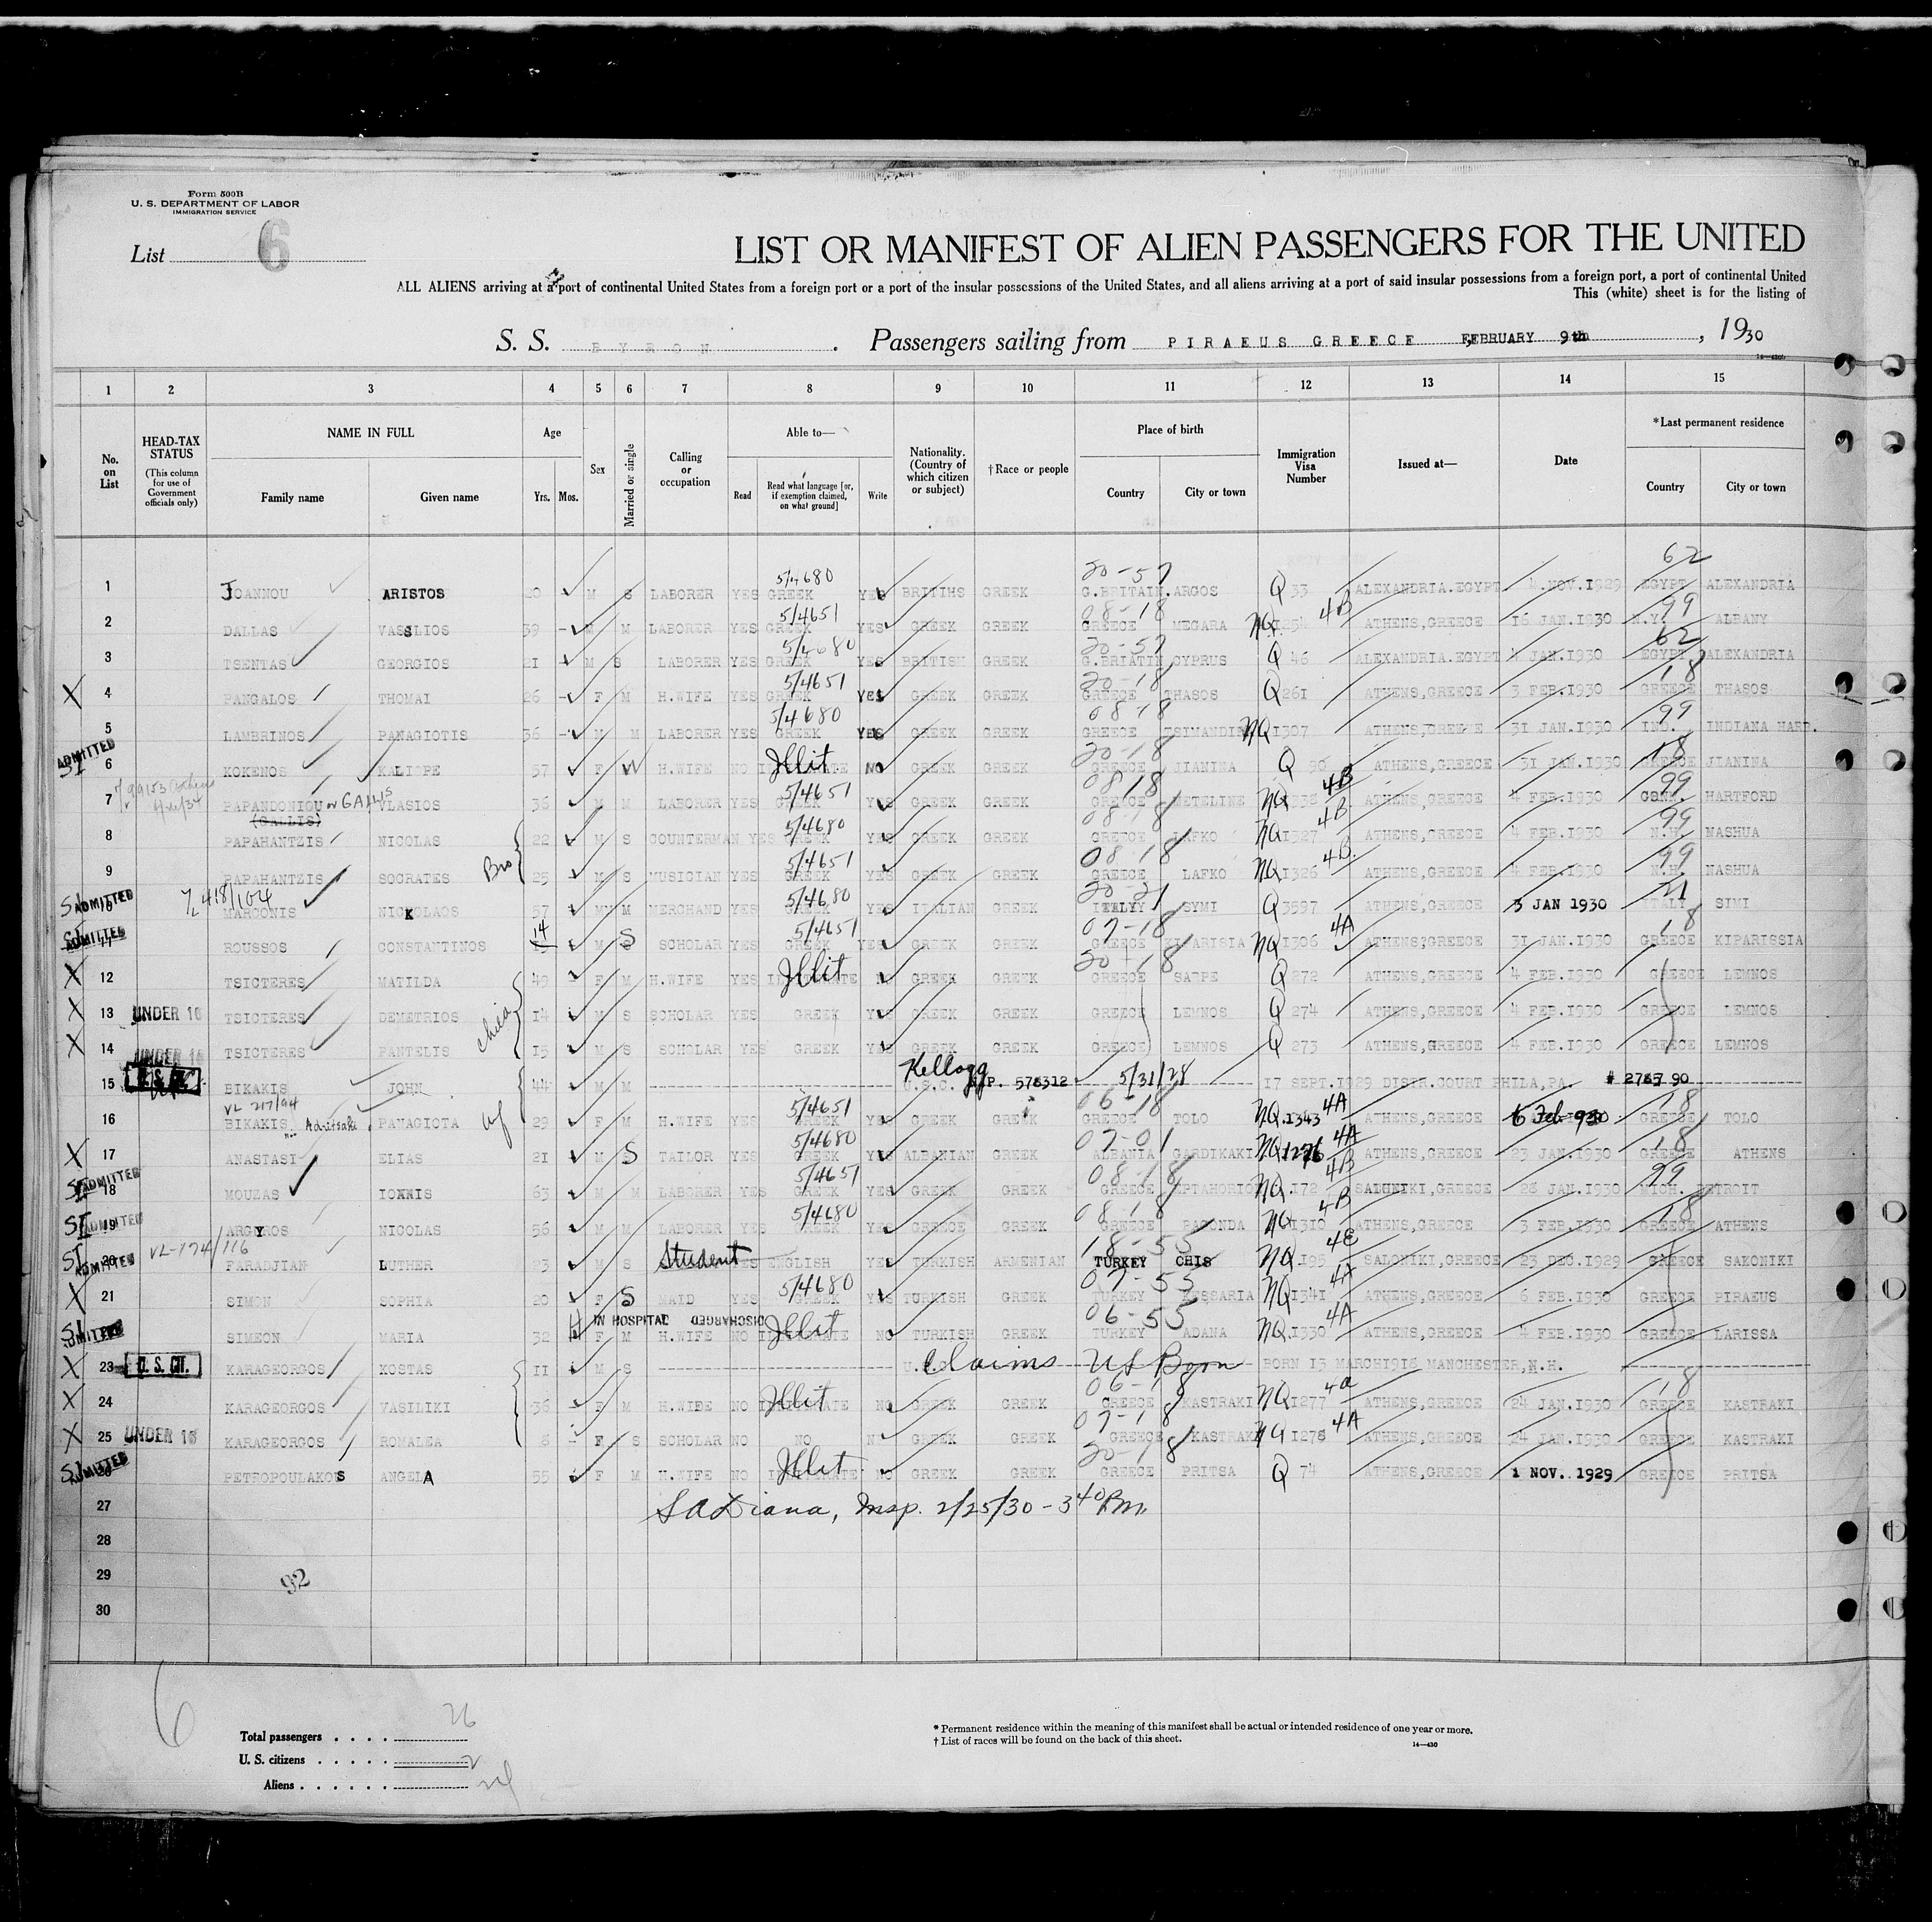 Form 500B
U. S. DEPARTMENT OF LABOR
IMMIGRATION SERVICE
List 6
LIST OR MANIFEST OF ALIEN PASSENGERS FOR THE UNITED
ALL ALIENS arriving at a port of continental United States from a foreign port or a port of the insular possessions of the United States, and all aliens arriving at a port of said insular possessions from a foreign port, a port of continental United
This (white) sheet is for the listing of
S. S. BYRON. Passengers sailing from PIRAEUS GREECE FEBRUARY 9th, 1930
14—430
1 2 3 4 5 6 7 8 9 10 11 12 13 14 15
No. on List
HEAD-TAX STATUS (This column for use of Government officials only)
NAME IN FULL Family name Given name
Age Yrs. Mos.
Sex
Married or single
Calling or occupation
Able to— Read Read what language [or, if exemption claimed, on what ground] Write
Nationality. (Country of which citizen or subject)
†Race or people
Place of birth Country City or town
Immigration Visa Number
Issued at—
Date
*Last permanent residence Country City or town
62
1 JOANNOU ARISTOS 20 M S LABORER YES 5/4680 GREEK YES BRITIHS GREEK 20-57 G.BRITAIN. ARGOS Q 33 ALEXANDRIA.EGYPT 4.NOV.1929 EGYPT ALEXANDRIA
2 DALLAS VASSILIOS 39 - M M LABORER YES 5/4651 GREEK YES GREEK GREEK 08-18 GREECE MEGARA NQ 1254 4B ATHENS,GREECE 16 JAN.1930 99 N.Y. ALBANY
3 TSENTAS GEORGIOS 21 - M S LABORER YES 5/4680 GREEK YES BRITISH GREEK 20-57 G.BRIATIN CYPRUS Q 46 ALEXANDRIA.EGYPT JAN.1930 62 EGYPT ALEXANDRIA
X 4 PANGALOS THOMAI 26 - F M H.WIFE YES 5/4651 GREEK YES GREEK GREEK 20-18 GREECE THASOS Q 261 ATHENS,GREECE 3 FEB.1930 18 GREECE THASOS
5 LAMBRINOS PANAGIOTIS 36 - M M LABORER YES 5/4680 GREEK YES GREEK GREEK 0818 GREECE NQ 1307 ATHENS,GREECE 31 JAN.1930 99 IND. INDIANA HARB.
ADMITTED SI 6 KOKENOS KALIOPE 57 F W H.WIFE NO Illit NO GREEK GREEK 20-18 GREECE JIANINA Q 90 ATHENS,GREECE 31 JAN.1930 18 GREECE JIANINA
7 PAPANDONIOU or GALLIS (GALLIS) VLASIOS 36 M M LABORER YES 5/4651 GREEK YES GREEK GREEK 0818 GREECE METELINE NQ 4B ATHENS,GREECE 4 FEB.1930 99 CONN. HARTFORD
8 PAPAHANTZIS NICOLAS 22 M S COUNTERMAN YES 5/4680 GREEK YES GREEK GREEK 08-18 GREECE LAFKO NQ 1327 4B ATHENS,GREECE 4 FEB.1930 99 N.H. NASHUA
9 PAPAHANTZIS SOCRATES Bro 25 M S MUSICIAN YES 5/4651 GREEK YES GREEK GREEK 08-18 GREECE LAFKO NQ 1326 4B. ATHENS,GREECE 4 FEB.1930 99 N.H. NASHUA
SI ADMITTED 10 MARCONIS NICKOLAOS 57 M M MERCHAND YES 5/4680 GREEK YES ITALIAN GREEK 20-21 ITALYY SYMI Q 3597 ATHENS,GREECE 3 JAN 1930 21 ITALY SIMI
SI ADMITTED 11 ROUSSOS CONSTANTINOS 14 M S SCHOLAR YES 5/4651 GREEK YES GREEK GREEK 07-18 GREECE KIPARISIA NQ 1306 4A ATHENS,GREECE 31 JAN.1930 18 GREECE KIPARISSIA
X 12 TSICTERES MATILDA 49 - F M H.WIFE YES Illit NO GREEK GREEK 20-18 GREECE SARPE Q 272 ATHENS,GREECE 4 FEB.1930 GREECE LEMNOS
X 13 UNDER 16 TSICTERES DEMETRIOS child 14 M S SCHOLAR YES GREEK YES GREEK GREEK GREECE LEMNOS Q 274 ATHENS,GREECE 4 FEB.1930 GREECE LEMNOS
X 14 UNDER 16 TSICTERES PANTELIS 15 M S SCHOLAR YES GREEK YES GREEK GREEK GREECE LEMNOS Q 273 ATHENS,GREECE 4 FEB.1930 GREECE LEMNOS
15 U. S. CIT. BIKAKIS JOHN 44 M M Kellogg U.S.C. P.P. 576312 5/31/28 17 SEPT.1929 DISTR.COURT PHILA,PA. # 2767 90
16 VL 217/94 BIKAKIS PANAGIOTA wf 29 F M H.WIFE YES 5/4651 GREEK YES GREEK GREEK 06-18 GREECE TOLO NQ.1343 4A ATHENS,GREECE 6 Feb 1930 18 GREECE TOLO
X 17 ANASTASI ELIAS 21 M S TAILOR YES 5/4680 GREEK YES ALBANIAN GREEK 07-01 ALBANIA GARDIKAKI NQ 1276 4A ATHENS,GREECE 23 JAN.1930 18 GREECE ATHENS
SI ADMITTED 18 MOUZAS IOANNIS 63 M M LABORER YES 5/4651 GREEK YES GREEK GREEK 08-18 GREECE NQ.172 4B SALONIKI,GREECE 28 JAN.1930 99 MICH. DETROIT
SI ADMITTED 19 ARGYROS NICOLAS 56 M M LABORER YES 5/4680 GREEK YES GREECE GREEK 0818 GREECE PAGONDA NQ 1310 4B ATHENS,GREECE 3 FEB.1930 18 GREECE ATHENS
SI ADMITTED 20 VL-174/116 FARADJIAN LUTHER 23 M S Student YES ENGLISH YES TURKISH ARMENIAN 18-55 TURKEY CHIS NQ 195 4E SALONIKI,GREECE 23 DEC.1929 GREECE SAKONIKI
X 21 SIMON SOPHIA 20 - F S MAID YES 5/4680 GREEK YES TURKISH GREEK 07-55 TURKEY KESSARIA NQ 1341 4A ATHENS,GREECE 6 FEB.1930 GREECE PIRAEUS
IN HOSPITAL DISCHARGED
SI ADMITTED SIMEON MARIA 32 F M H.WIFE NO Illit NO TURKISH GREEK 06-55 TURKEY ADANA NQ.1330 4A ATHENS,GREECE 4 FEB.1930 GREECE LARISSA
X 23 U. S. CIT. KARAGEORGOS KOSTAS 11 M S U.S.C. Claims US Born BORN 13 MARCH1918 MANCHESTER,N.H.
X 24 KARAGEORGOS VASILIKI 36 - F M H.WIFE NO Illit NO GREEK GREEK 06-18 GREECE KASTRAKI NQ 1277 4a ATHENS,GREECE 24 JAN.1930 18 GREECE KASTRAKI
X 25 UNDER 16 KARAGEORGOS ROMALEA 8 - F S SCHOLAR NO NO N GREEK GREEK 07-18 GREECE KASTRAKI NQ 1278 4A ATHENS,GREECE 24 JAN.1930 GREECE KASTRAKI
SI ADMITTED 26 PETROPOULAKOS ANGELA 55 F M H.WIFE NO Illit NO GREEK GREEK 20-18 GREECE PRITSA Q 74 ATHENS,GREECE 1 NOV. 1929 GREECE PRITSA
27 S A Diana, Insp. 2/25/30 - 3 40 P.m.
28
29 92
30
6
Total passengers . . . . 26
U. S. citizens . . . . . 2
Aliens . . . . . . 24
* Permanent residence within the meaning of this manifest shall be actual or intended residence of one year or more.
† List of races will be found on the back of this sheet.
14—430